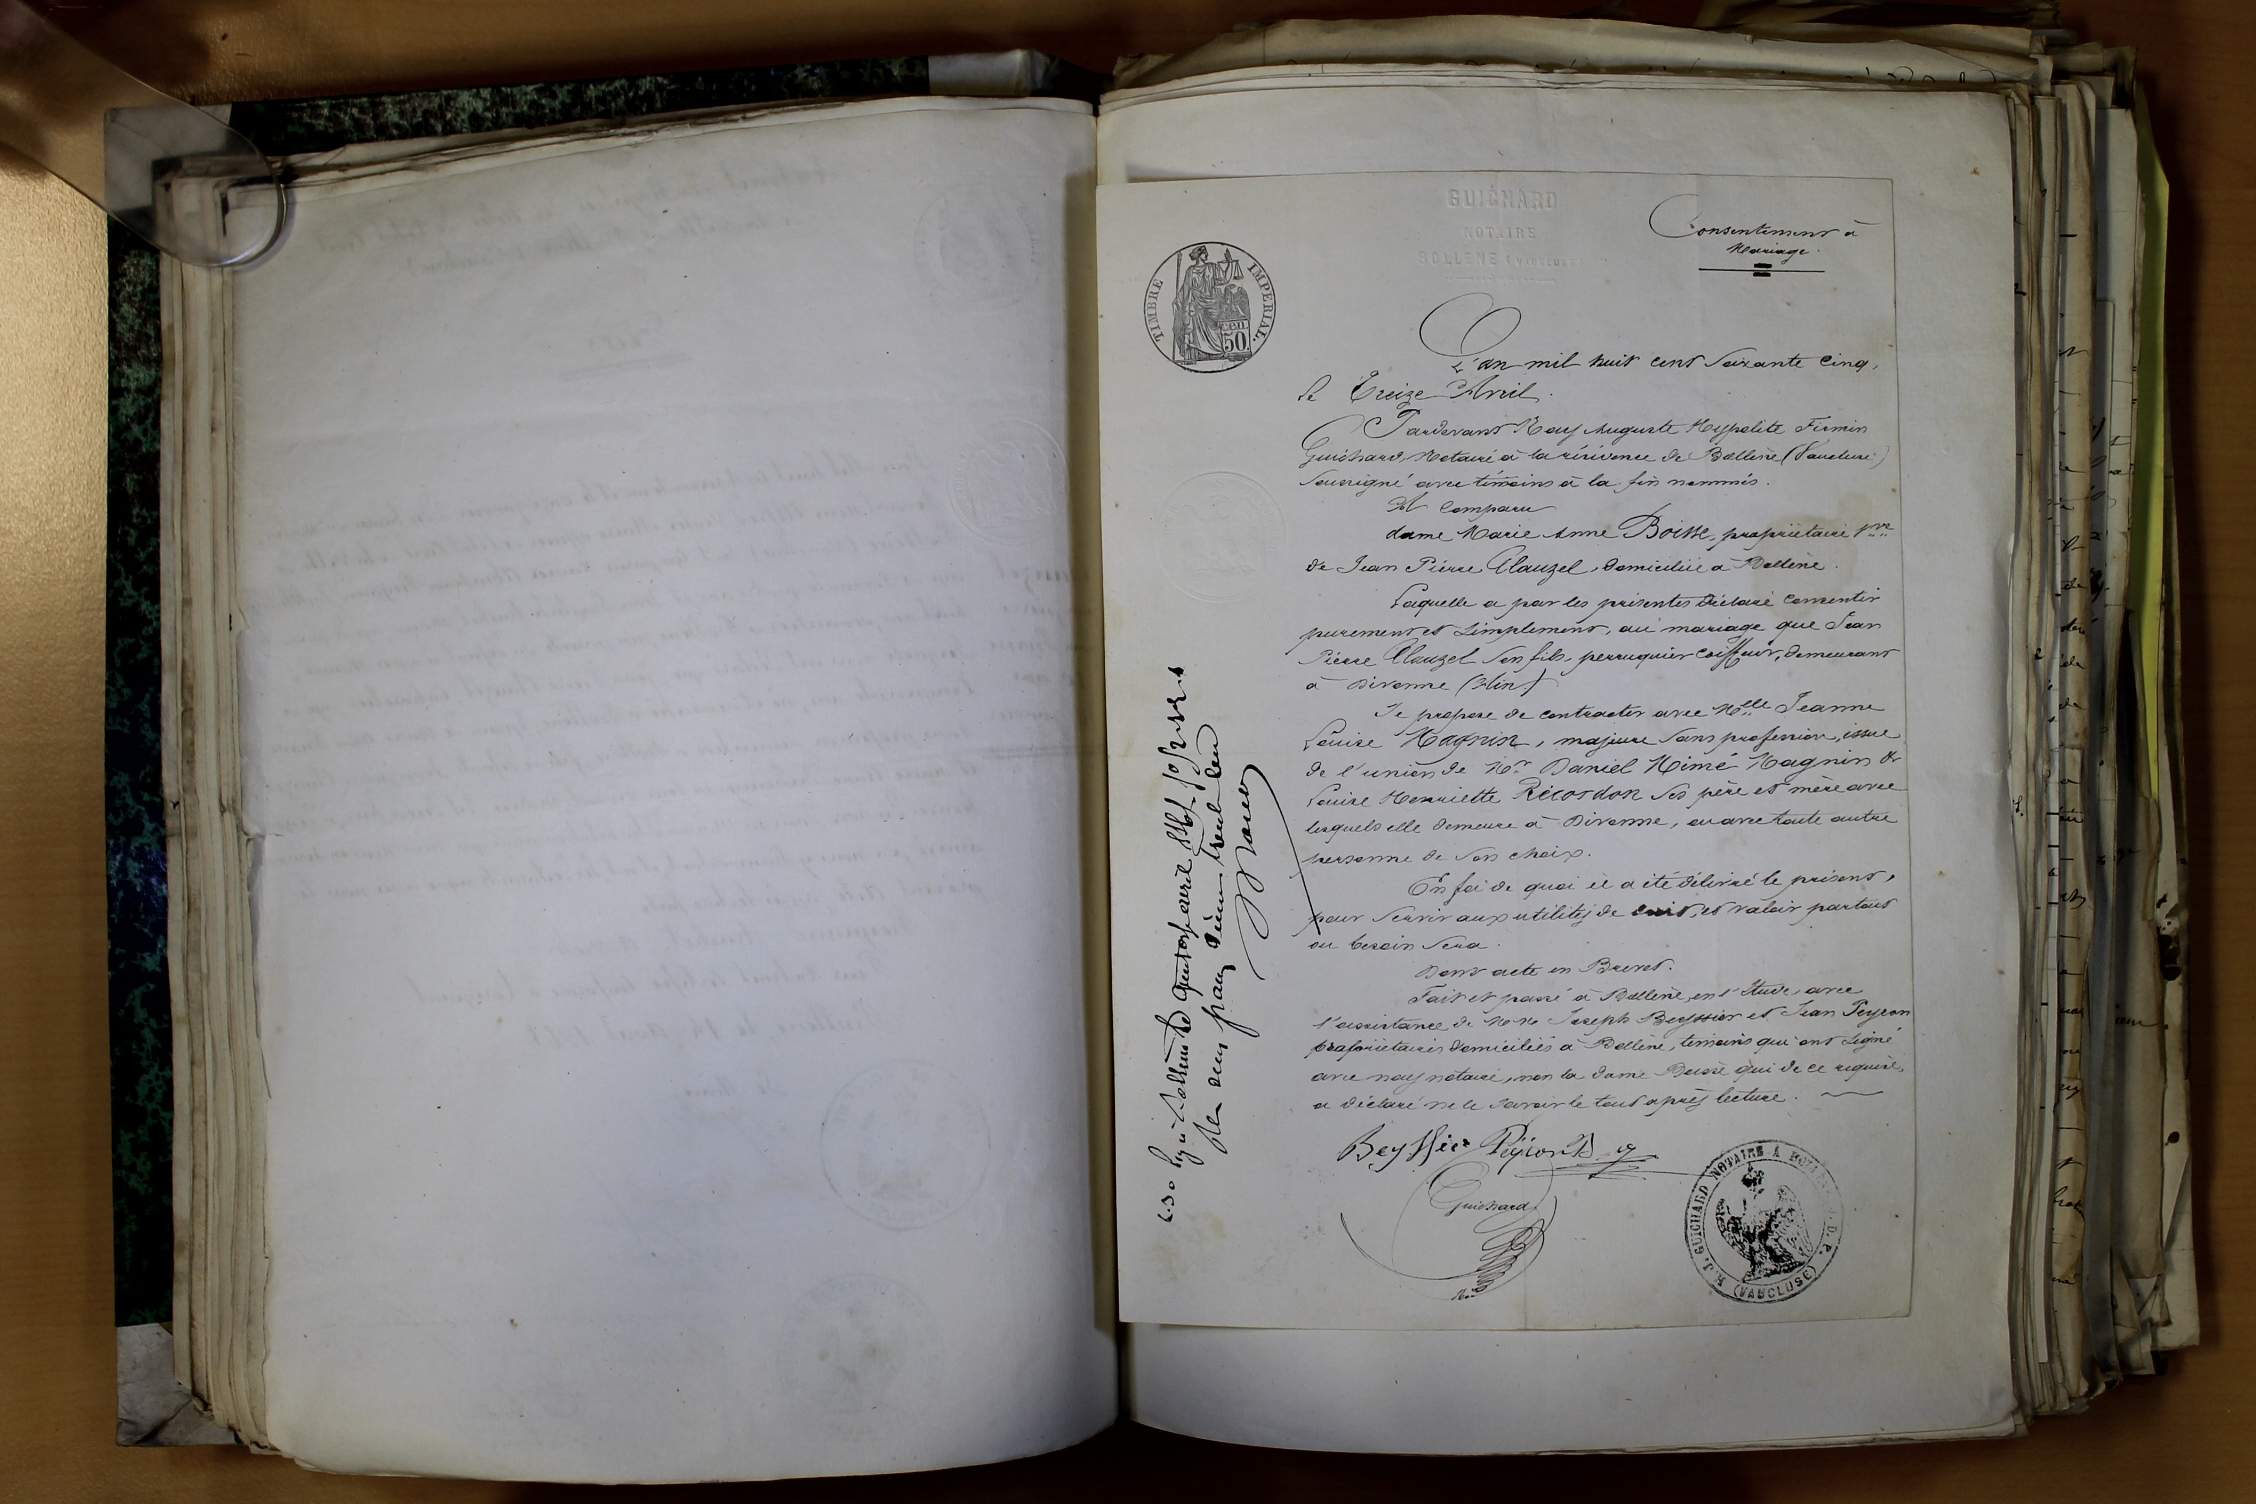 GUICHARD
NOTAIRE
BOLLENE (VAUCLUSE)
Consentement à
Mariage.
TIMBRE IMPERIAL.
CEN.
50.
L'an mil huit cent soixante cinq,
le Treize Avril.
Pardevant Nous Auguste Hypolite Firmin
Guichard, Notaire à la résidence de Bollène (Vaucluse)
soussigné avec témoins à la fin nommés.
A comparu
dame Marie Anne Boisse, propriétaire
de Jean Pierre Clauzel, domiciliée à Bollène.
Laquelle a par les présentes déclaré consentir
purement et simplement, au mariage que Jean
Pierre Clauzel son fils, perruquier coiffeur, demeurant
à Divonne (Ain)
Se propose de contracter avec Mlle Jeanne
Louise Magnin, majeure sans profession, issue
de l'union de Mr Daniel Mimé Magnin &
Louise Henriette Récordon ses père et mère avec
lesquels elle demeure à Divonne, ou avec toute autre
personne de son choix.
En foi de quoi il a été délivré le présent,
pour servir aux utilités de et valoir partout
ou besoin sera.
Dont acte en Brevet.
Fait et passé à Bollène, en l'étude, avec
l'assistance de MM Joseph Beyssier et Jean Peyron
propriétaires domiciliés à Bollène, témoins qui ont signé
avec nous notaire, non la dame Boisse qui de ce requise,
a déclaré ne le savoir le tout après lecture.
Beyssier Peyron
Guichard
Nre
H. J. GUICHARD NOTAIRE À BOLLENE
(VAUCLUSE)
quatorze avril